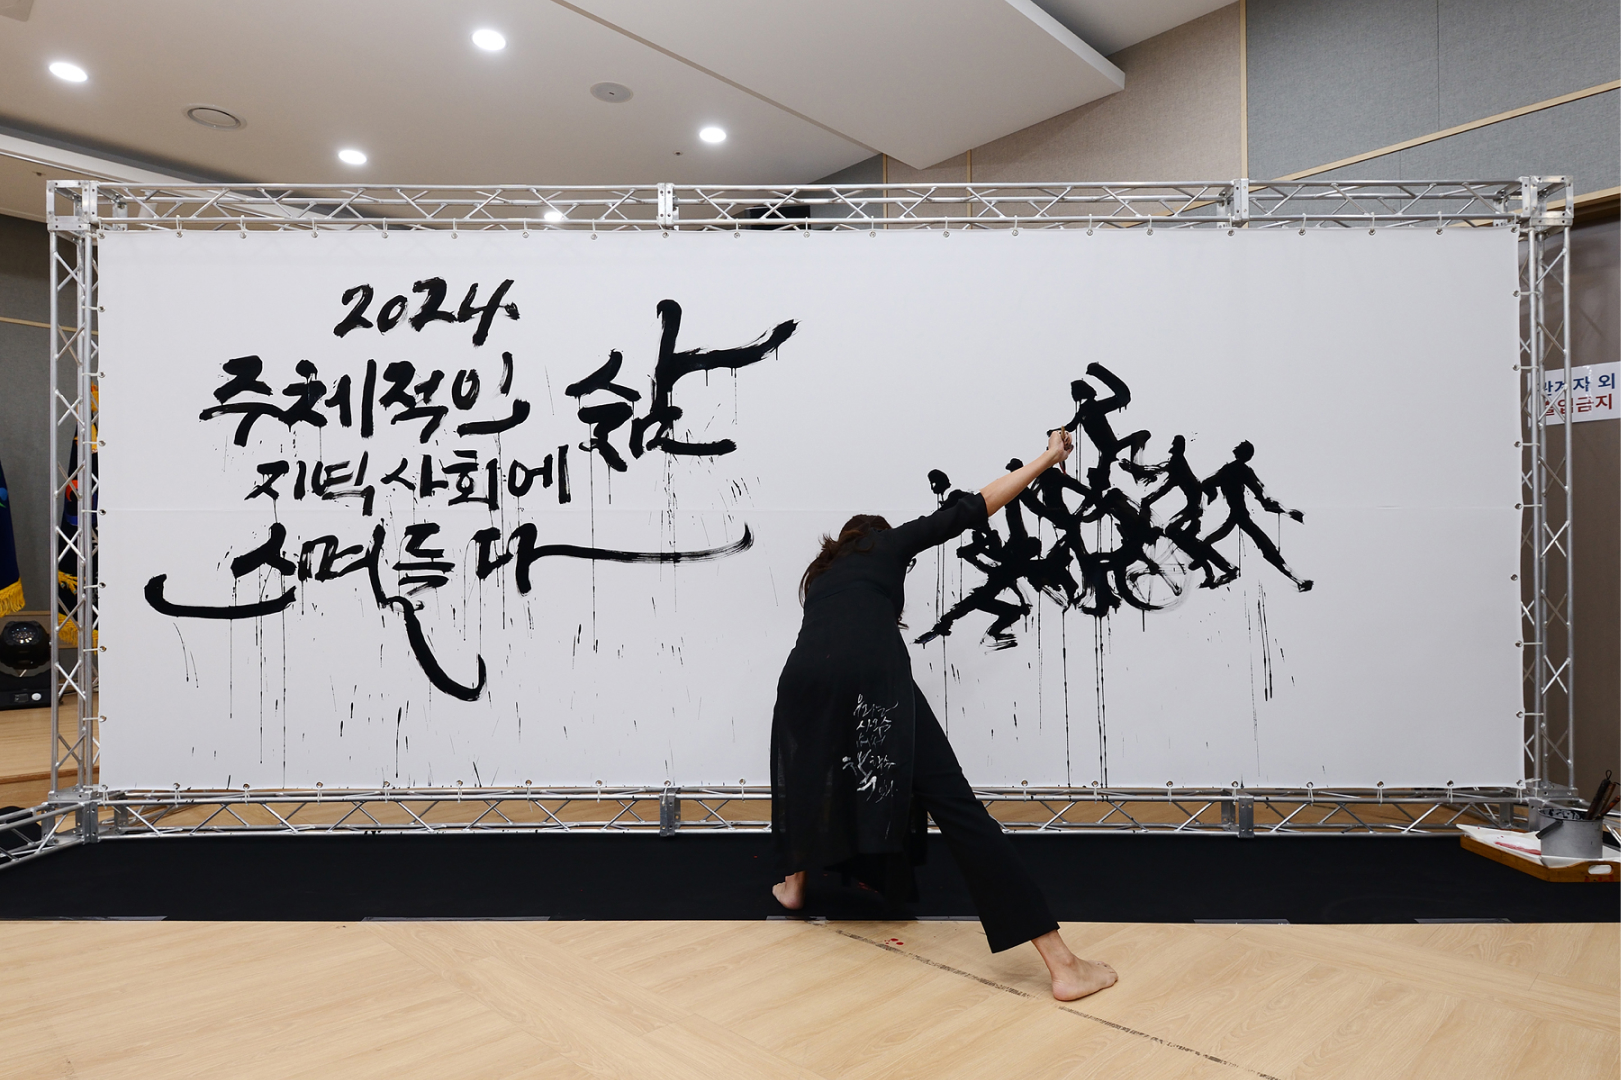 2024
주체적인 삶
지역사회에
스며들다
관계자 외
출입금지